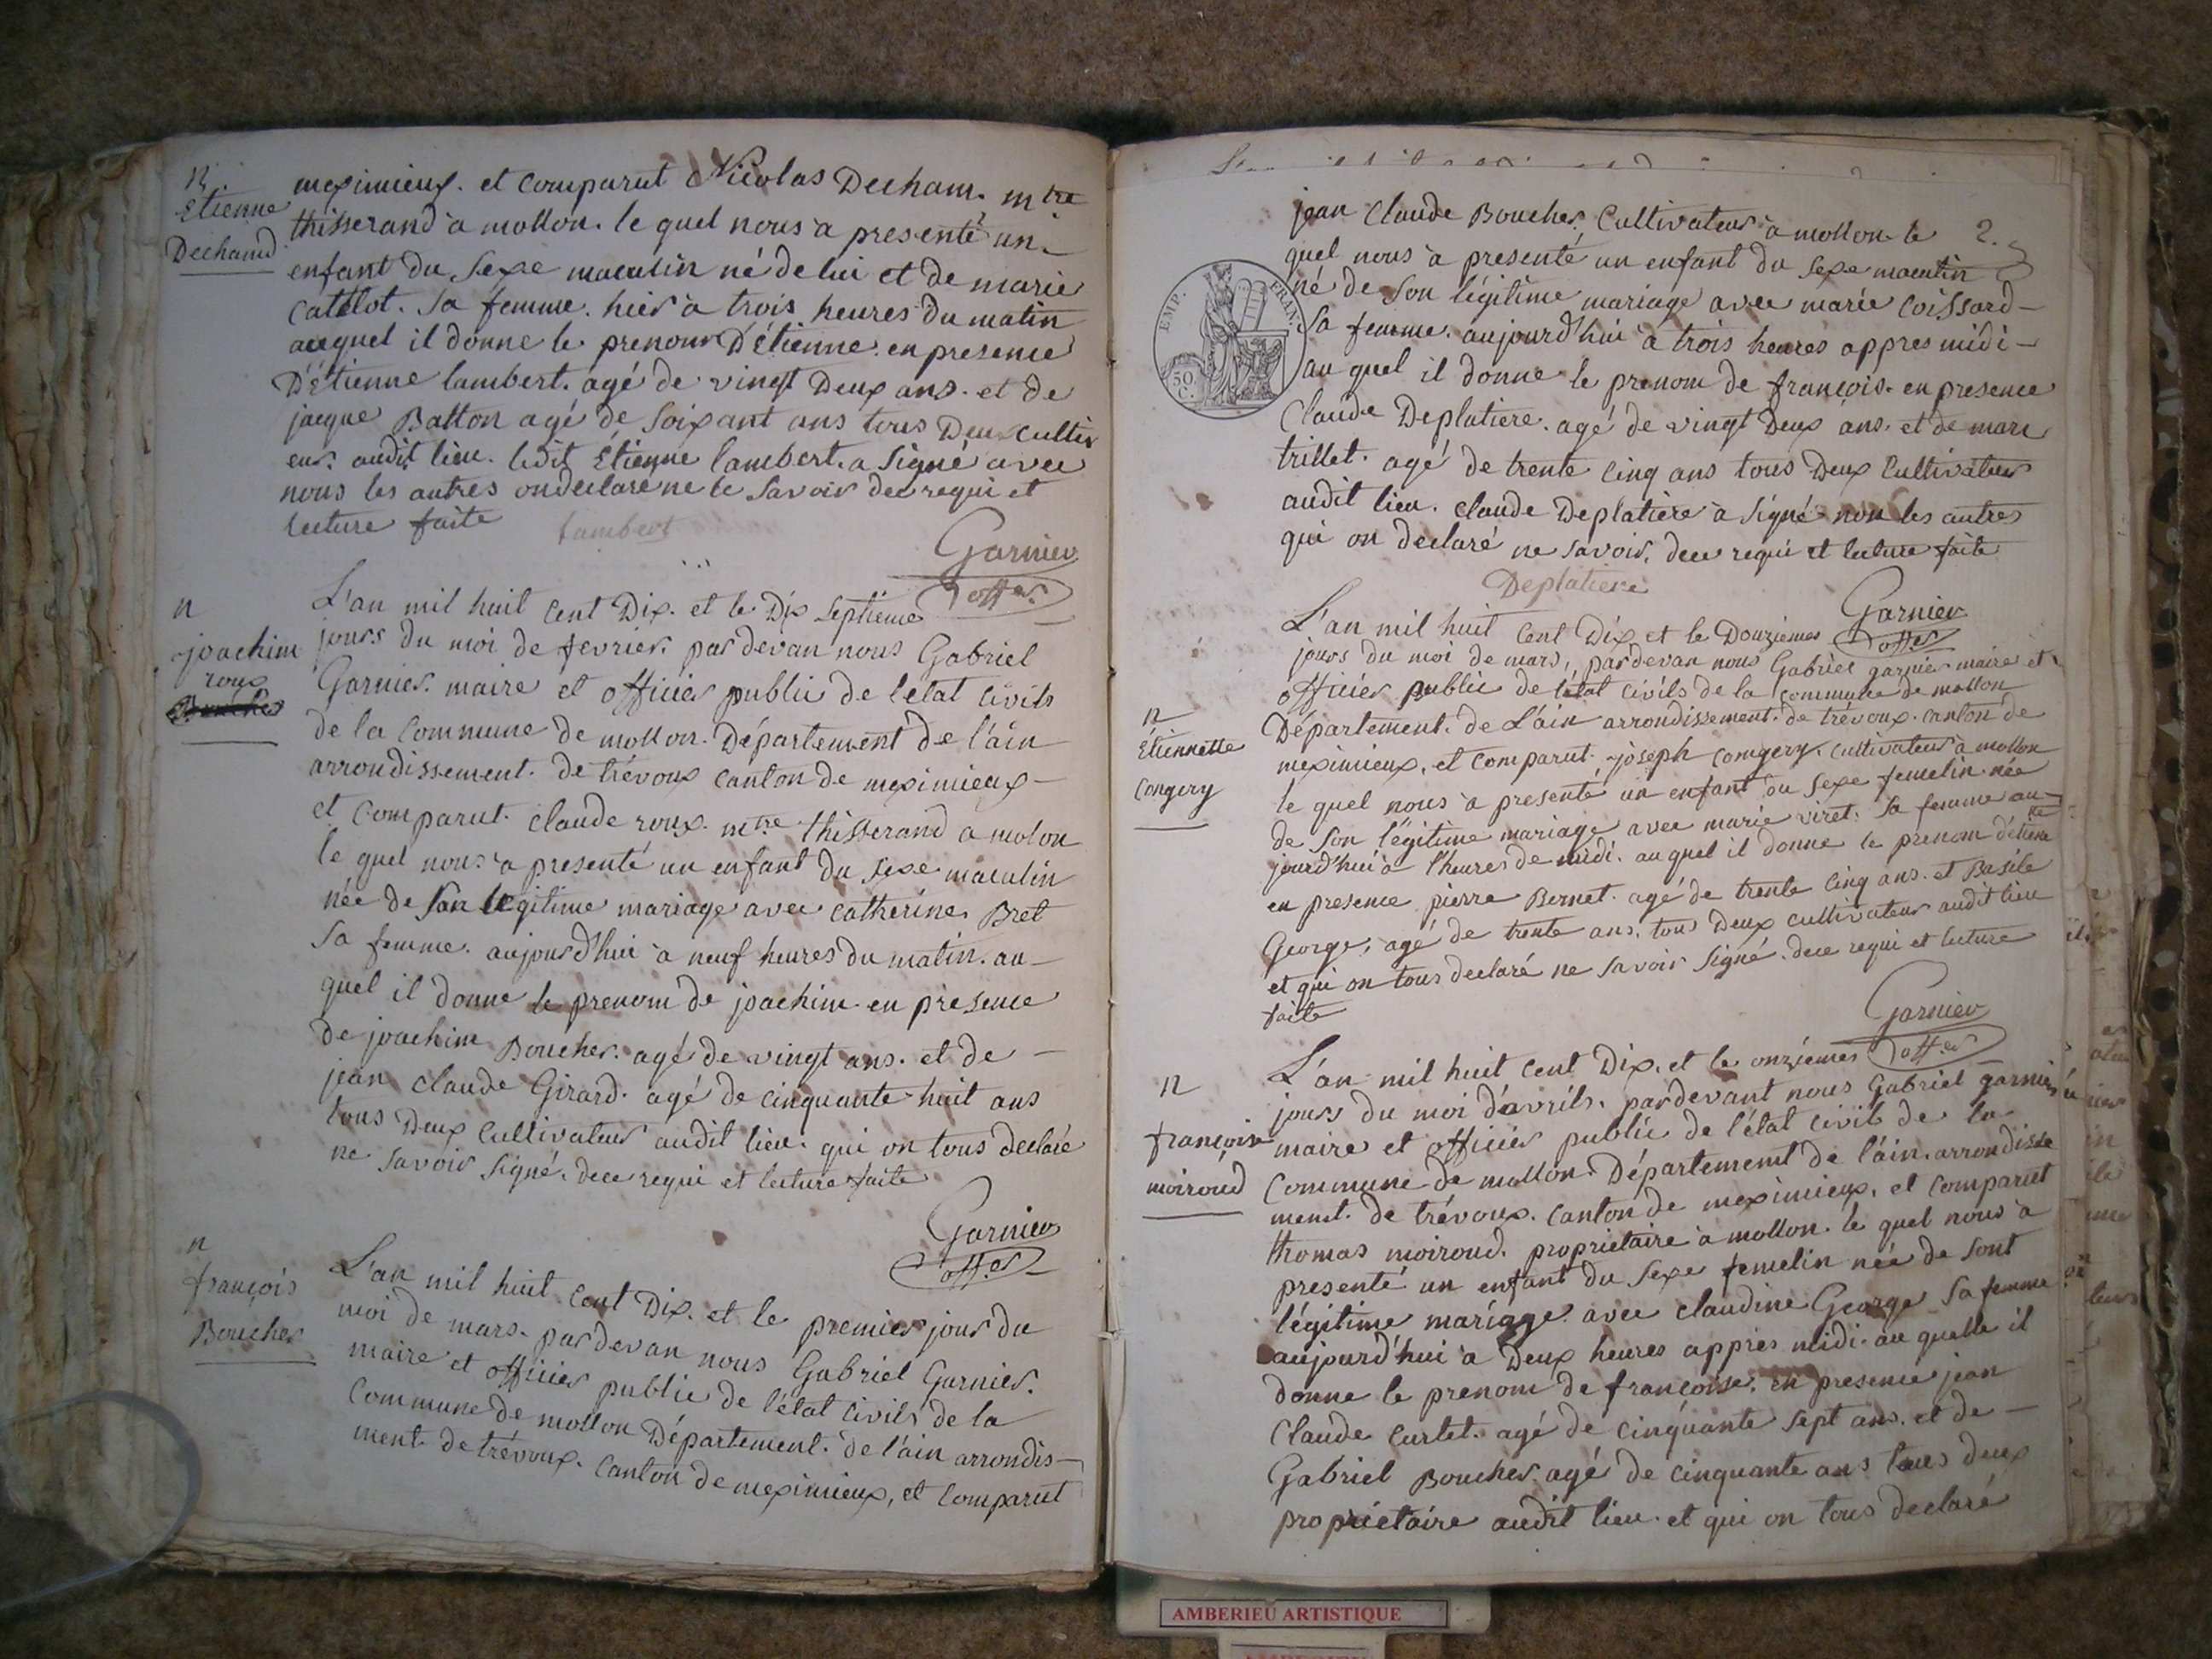 n
Etienne
Dechand
meximieux. et comparut Nicolas Decham. mtre
thisserand à mollon. le quel nous à presenté un
enfant du Sexe maculin né de lui et de marie
Catelot. Sa femme. hier à trois heures du matin
auquel il donne le prenom D'étienne. en presence
D'étienne lambert. agé de vingt Deux ans. et de
jacque Batton agé de Soixant ans tous Deux Cultiv
eur. audit lieu. ledit Étienne lambert. a Signé avec
nous les autres on declaré ne le Savoir dec requi et
lecture faite
Lambert
Garnier
offer
n
joachim
roux
L'an mil huit Cent Dix. et le Dix Septieme
jours du moi de fevrier. par devan nous Gabriel
Garnier. maire et officier public de l'etat Civils
de la Commune de mollon. Département de l'ain
arrondissement. de trévoux canton de meximieux
et Comparut. Claude roux. mtre thisserand à molon
le quel nous à presenté un enfant du Sexe maculin
née de Son legitime mariage avec Catherine Bret
Sa femme. aujourd'hui à neuf heures du matin. au
quel il donne le prenom de joachim en présence
de joachim Boucher. agé de vingt ans. et de
jean Claude Girard. agé de Cinquante huit ans
tous Deux Cultivateur audit lieu. qui on tous declaré
ne Savoir Signé. dece requi et lecture faite
Garnier
offer
n
françois
Boucher
L'an mil huit Cent Dix. et le premier jour du
moi de mars. par devan nous Gabriel Garnier.
maire et officier public de l'état Civils de la
Commune de mollon Département. de l'ain arrondis
ment de trévoux. Canton de meximieux, et Comparut
2.
jean Claude Boucher. Cultivateur à mollon le
quel nous à presenté un enfant du Sexe maculin
né de Son légitime mariage avec marie Coissard
Sa femme. aujourd'hui à trois heures appres midi
au quel il donne le prenom de françois. en presence
Claude Deplatiere. agé de vingt Deux ans. et de marc
trillet. agé de trente Cinq ans tous Deux Cultivateur
audit lieu. Claude Deplatiere à Signé non les autres
qui on declaré ne Savoir. dece requi et lecture faite
EMP. FRAN.
50
C.
Deplatiere
Garnier
offer
n
Etiennette
Congery
L'an mil huit Cent Dix, et le Douziemes
jours du moi de mars, par devan nous Gabriel garnier maire et
officier public de l'état Civils de la Commune de mollon
Département. de L'ain arrondissement. de trévoux. canton de
meximieux, et Comparut. joseph Comgery. Cultivateur à mollon
le quel nous à presenté un enfant du Sexe femelin née
de Son légitime mariage avec marie viret. Sa femme au
jourd'hui à l'heures de midi. au quel il donne le prenom d'étiene
tte
en presence pierre Bernet. agé de trente Cinq ans. et Basile
George, agé de trente ans. tous Deux Cultivateur audit lieu
et qui on tous declaré ne Savoir Signé. dece requi et lecture
faite
Garnier
offer
n
françoise
moiroud
L'an mil huit Cent Dix. et le onziemes
jours du moi d'avrils. par devant nous Gabriel garnier
maire et officier public de l'état Civil de la
Commune de mollon Département de l'ain. arrondisse
ment. de trévoux. Canton de meximieux. et Comparut
thomas moiroud. proprietaire à mollon. le quel nous à
presenté un enfant du Sexe femelin née de Sont
légitime mariage avec Claudine George Sa femme
aujourd'hui à Deux heures appres midi. au quelle il
donne le prenom de françoise. en presence jean
Claude Curtet. agé de Cinquante Sept ans. et de
Gabriel Boucher agé de Cinquante ans tous deux
propriétaire audit lieu. et qui on tous declaré
AMBERIEU ARTISTIQUE
AMBERIEU